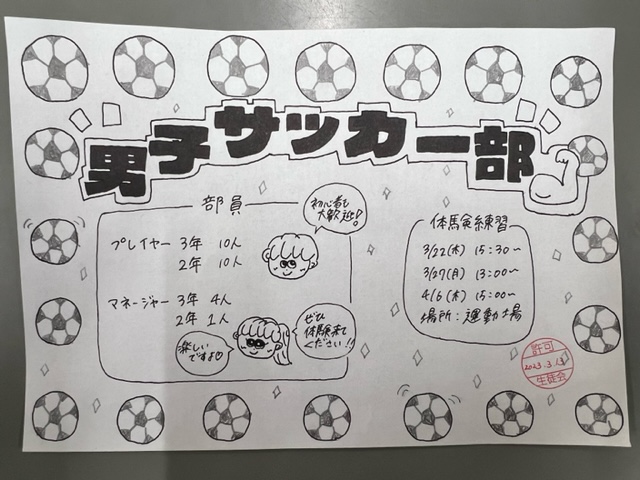 男子サッカー部
部員
初心者も
大歓迎!
プレイヤー 3年 10人
2年 10人
マネージャー 3年 4人
2年 1人
楽しい
ですよ♡
ぜひ
体験来て
ください!!
体験練習
3/22(水) 15:30〜
3/27(月) 13:00〜
4/6(木) 15:00〜
場所:運動場
許可
2023.3.13
生徒会